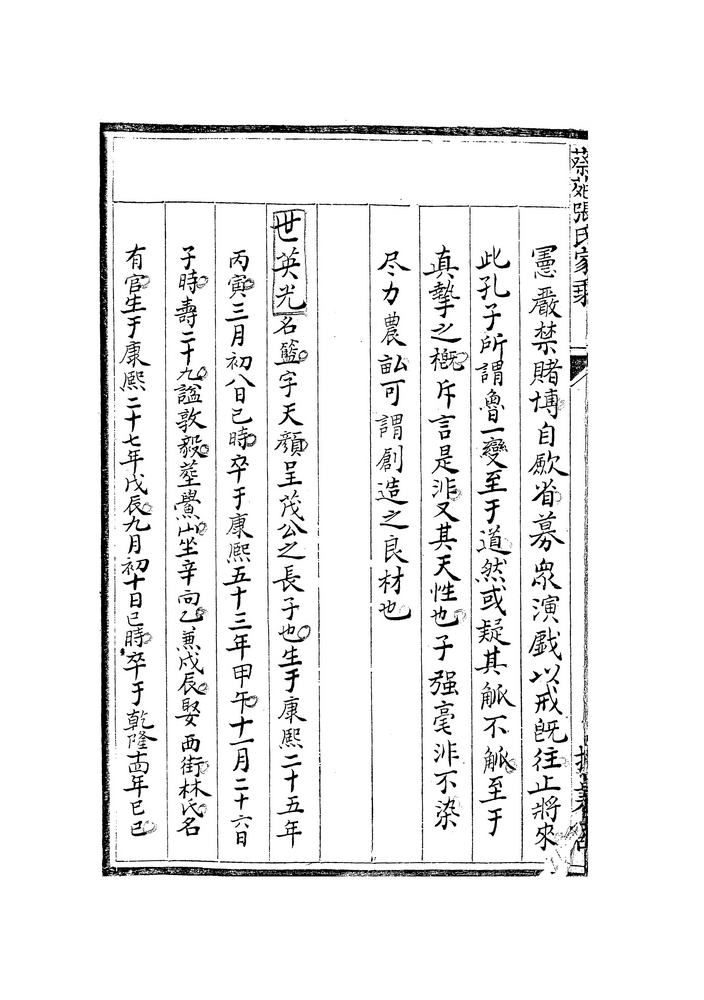 蔡宛張氏家乘
憲嚴禁賭博自歉省募眾演戲以戒旣往止將來
此孔子所謂魯一變至于道然或疑其觚不觚至于
真摯之槪斥言是非又其天性也子强毫非不染
尽力農畆可謂創造之良材也
世英光名籃字天顏呈茂公之長子也生于康熙二十五年
丙寅三月初八日巳時卒于康熙五十三年甲午十一月二十六日
子時壽二十九諡敦毅塟黌山坐辛向乙兼戌辰娶西街林氏名
有官生于康熙二十七年戊辰九月初十日巳時卒于乾隆十四年己巳